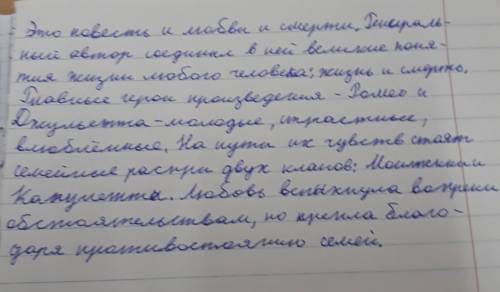 Это повесть и любви и смерти. Генираль-
ный автор соединил в ней великие поня-
тия жизни любого человека: жизнь и смерть.
Главные герои произведения - Ромео и
Джульетта - молодые, страстные,
влюблённые. На пути их чувств стоят
семейные распри двух кланов: Монтекки и
Капулетти. Любовь вспыхнула вопреки
обстоятельствам, но крепла благо-
даря противостоянию семей.